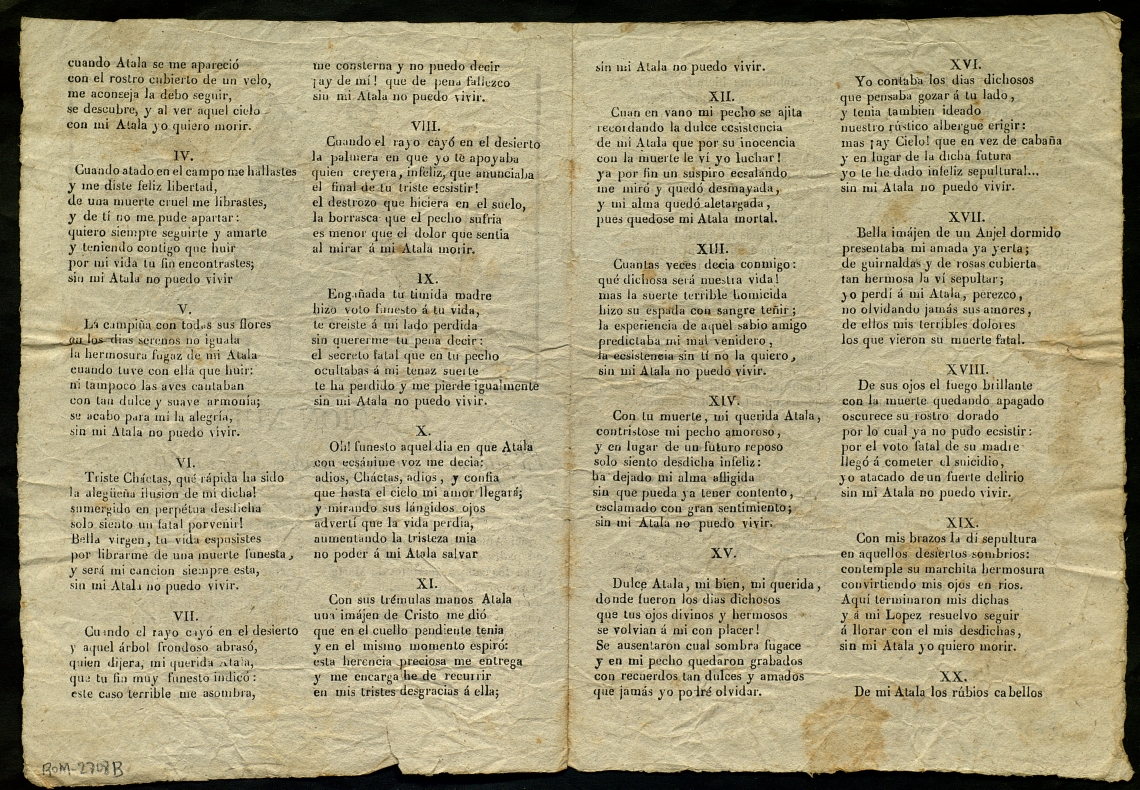 cuando Atala se me apareció
con el rostro cubierto de un velo,
me aconseja la debo seguir,
se descubre, y al ver aquel cielo
con mi Atala yo quiero morir.
IV.
Cuando atado en el campo me hallastes
y me diste feliz libertad,
de una muerte cruel me librastes,
y de tí no me pude apartar:
quiero siempre seguirte y amarte
y teniendo contigo que huir
por mi vida tu fin encontrastes;
sin mi Atala no puedo vivir
V.
La campiña con todas sus flores
en los dias serenos no iguala
la hermosura fugaz de mi Atala
cuando tuve con ella que huir:
ni tampoco las aves cantaban
con tan dulce y suave armonía;
se acabo para mi la alegría,
sin mi Atala no puedo vivir.
VI.
Triste Cháctas, qué rápida ha sido
la alegüeña ilusion de mi dicha!
sumergido en perpétua desdicha
solo siento un fatal porvenir!
Bella virgen, tu vida espusistes
por librarme de una muerte funesta,
y será mi cancion siempre esta,
sin mi Atala no puedo vivir.
VII.
Cuando el rayo cayó en el desierto
y aquel árbol frondoso abrasó,
quien dijera, mi querida Atala,
que tu fin muy funesto indicó:
este caso terrible me asombra,
me consterna y no puedo decir
¡ay de mí! que de pena fallezco
sin mi Atala no puedo vivir.
VIII.
Cuando el rayo cayó en el desierto
la palmera en que yo te apoyaba
quien creyera, infeliz, que anunciaba
el final de tu triste ecsistir!
el destrozo que hiciera en el suelo,
la borrasca que el pecho sufria
es menor que el dolor que sentia
al mirar á mi Atala morir.
IX.
Engañada tu timida madre
hizo voto funesto á tu vida,
te creiste á mi lado perdida
sin quererme tu pena decir:
el secreto fatal que en tu pecho
ocultabas á mi tenaz suerte
te ha perdido y me pierde igualmente
sin mi Atala no puedo vivir.
X.
Oh! funesto aquel dia en que Atala
con ecsánime voz me decia:
adios, Cháctas, adios, y confia
que hasta el cielo mi amor llegará;
y mirando sus lángidos ojos
advertí que la vida perdia,
aumentando la tristeza mia
no poder á mi Atala salvar
XI.
Con sus trémulas manos Atala
una imájen de Cristo me dió
que en el cuello pendiente tenia
y en el mismo momento espiró:
esta herencia preciosa me entrega
y me encarga he de recurrir
en mis tristes desgracias á ella;
sin mi Atala no puedo vivir.
XII.
Cuan en vano mi pecho se ajita
recordando la dulce ecsistencia
de mi Atala que por su inocencia
con la muerte le ví yo luchar!
ya por fin un suspiro ecsalando
me miró y quedó desmayada,
y mi alma quedó aletargada,
pues quedose mi Atala mortal.
XIII.
Cuantas veces decia conmigo:
qué dichosa será nuestra vida!
mas la suerte terrible homicida
hizo su espada con sangre teñir;
la esperiencia de aquel sabio amigo
predictaba mi mal venidero,
la ecsistencia sin tí no la quiero,
sin mi Atala no puedo vivir.
XIV.
Con tu muerte, mi querida Atala,
contristose mi pecho amoroso,
y en lugar de un futuro reposo
solo siento desdicha infeliz:
ha dejado mi alma afligida
sin que pueda ya tener contento,
esclamado con gran sentimiento;
sin mi Atala no puedo vivir.
XV.
Dulce Atala, mi bien, mi querida,
donde fueron los dias dichosos
que tus ojos divinos y hermosos
se volvian á mi con placer!
Se ausentaron cual sombra fugace
y en mi pecho quedaron grabados
con recuerdos tan dulces y amados
que jamás yo podré olvidar.
XVI.
Yo contaba los dias dichosos
que pensaba gozar á tu lado,
y tenia tambien ideado
nuestro rústico albergue erigir:
mas ¡ay Cielo! que en vez de cabaña
y en lugar de la dicha futura
yo te he dado infeliz sepultural...
sin mi Atala no puedo vivir.
XVII.
Bella imájen de un Anjel dormido
presentaba mi amada ya yerta;
de guirnaldas y de rosas cubierta
tan hermosa la ví sepultar;
yo perdí á mi Atala, perezco,
no olvidando jamás sus amores,
de ellos mis terribles dolores
los que vieron su muerte fatal.
XVIII.
De sus ojos el fuego brillante
con la muerte quedando apagado
oscurece su rostro dorado
por lo cual ya no pudo ecsistir:
por el voto fatal de su madre
llegó á cometer el suicidio,
yo atacado de un fuerte delirio
sin mi Atala no puedo vivir.
XIX.
Con mis brazos la dí sepultura
en aquellos desiertos sombrios:
contemple su marchita hermosura
convirtiendo mis ojos en rios.
Aquí terminaron mis dichas
y á mi Lopez resuelvo seguir
á llorar con el mis desdichas,
sin mi Atala yo quiero morir.
XX.
De mi Atala los rúbios cabellos
ROM-2708B